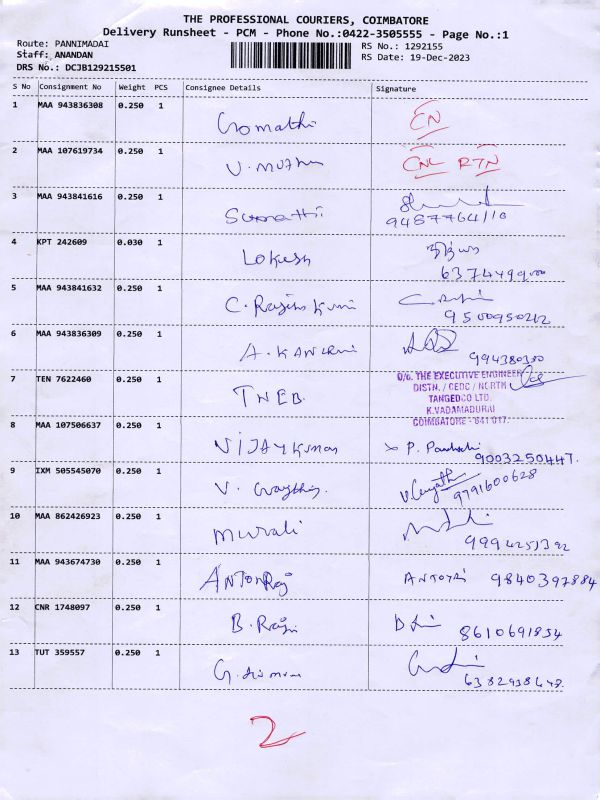 THE PROFESSIONAL COURIERS, COIMBATORE
Delivery Runsheet - PCM - Phone No.:0422-3505555 - Page No.:1
Route: PANNIMADAI
Staff: ANANDAN
DRS No.: DCJB129215501
RS No.: 1292155
RS Date: 19-Dec-2023
S No Consignment No Weight PCS Consignee Details Signature
1 MAA 943836308 0.250 1 Gomathi CN
2 MAA 107619734 0.250 1 V. Muthu CNL RTN
3 MAA 943841616 0.250 1 Sumathi
9487764110
4 KPT 242609 0.030 1 Lokesh
5 MAA 943841632 0.250 1 C.
9500950212
6 MAA 943836309 0.250 1 A.
7 TEN 7622460 0.250 1 TNEB
O/o. THE EXECUTIVE ENGINEER
DISTN. / CEDC / NORTH
TANGEDCO LTD.
K.VADAMADURAI
COIMBATORE - 641 017.
8 MAA 107506637 0.250 1 Vijaykumar P.
9003250447.
9 IXM 505545070 0.250 1 V.
9791600628
10 MAA 862426923 0.250 1 Murali
9994251392
11 MAA 943674730 0.250 1 AntonRaj 9840397884
12 CNR 1748097 0.250 1 B. Raji
8610691834
13 TUT 359557 0.250 1 G.
6382938648
2